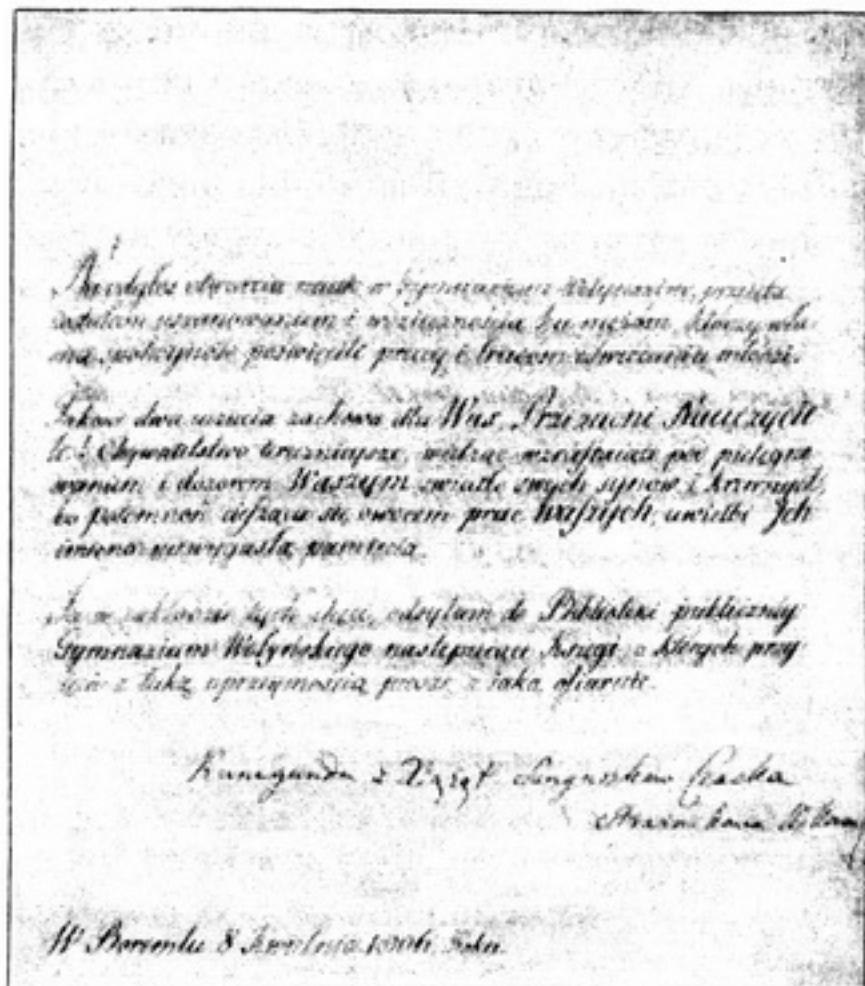 otwarcia nauk w Gymnazium Wołyńskim, przejęta
uszanowaniem i wdzięcznością ku mężom, którzy
spokoyność poświęcili pracy i trudom oświecania młodzi.
dwa uczucia zachowa dla Was, Przezacni Nauczyciele
! Obywatelstwo teraźnieysze, widząc wzrastaiące pod pielęgno
waniem i dozorem Waszym światło swych synów, i krewnych,
bo potomność ciesząca się owocem prac Waszych, uwielbi Jch
imiona niewygasłą pamięcią.
Ja w zakładzie tych chęci, odsyłam do Biblioteki publiczney
Gymnazium Wołyńskiego następuiące Xsięgi, o których przy
ięcie z taką uprzeymością proszę, z iaką ofiaruię.
Kunegunda z Xiążąt Sanguszków Czacka
W Boremlu 8 Kwietnia 1806 Roku.